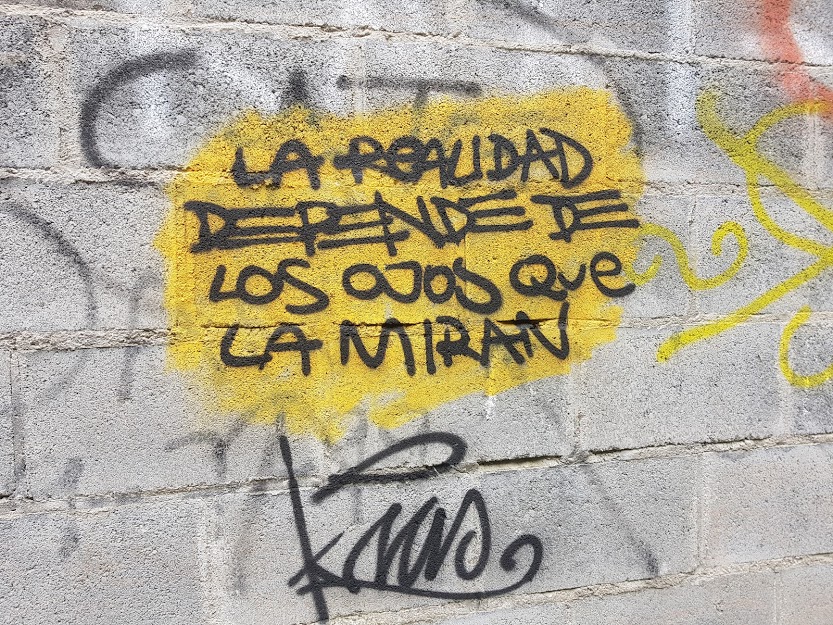 LA REALIDAD
DEPENDE DE
LOS OJOS QUe
LA MIRAN